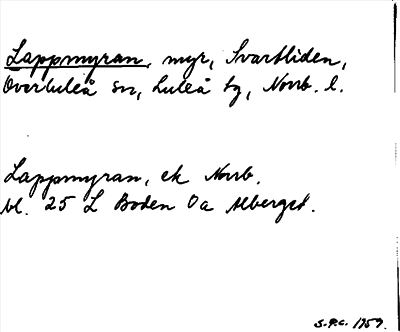 Lappmyran, myr, Svartliden,
Överluleå sn, Luleå tg, Norrb. l.
Lappmyran, ek Norrb.
bl. 25 L Boden 0a Alberget.
S.P.C. 1959.